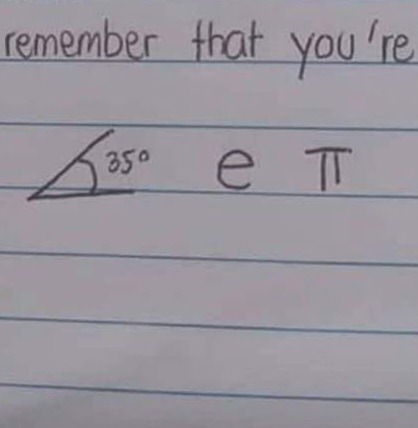 remember that you're
35° e π